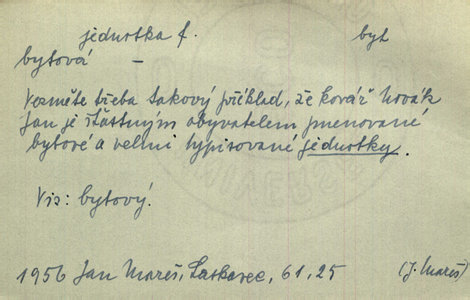 jednotka f. byt
bytová —
Vezměte třeba takový příklad, že kovář Novák
Jan je šťastným obyvatelem jmenované
bytové a velmi typisované jednotky.
Viz: bytový.
1956 Jan Mareš, 61, 25 (J. Mareš)